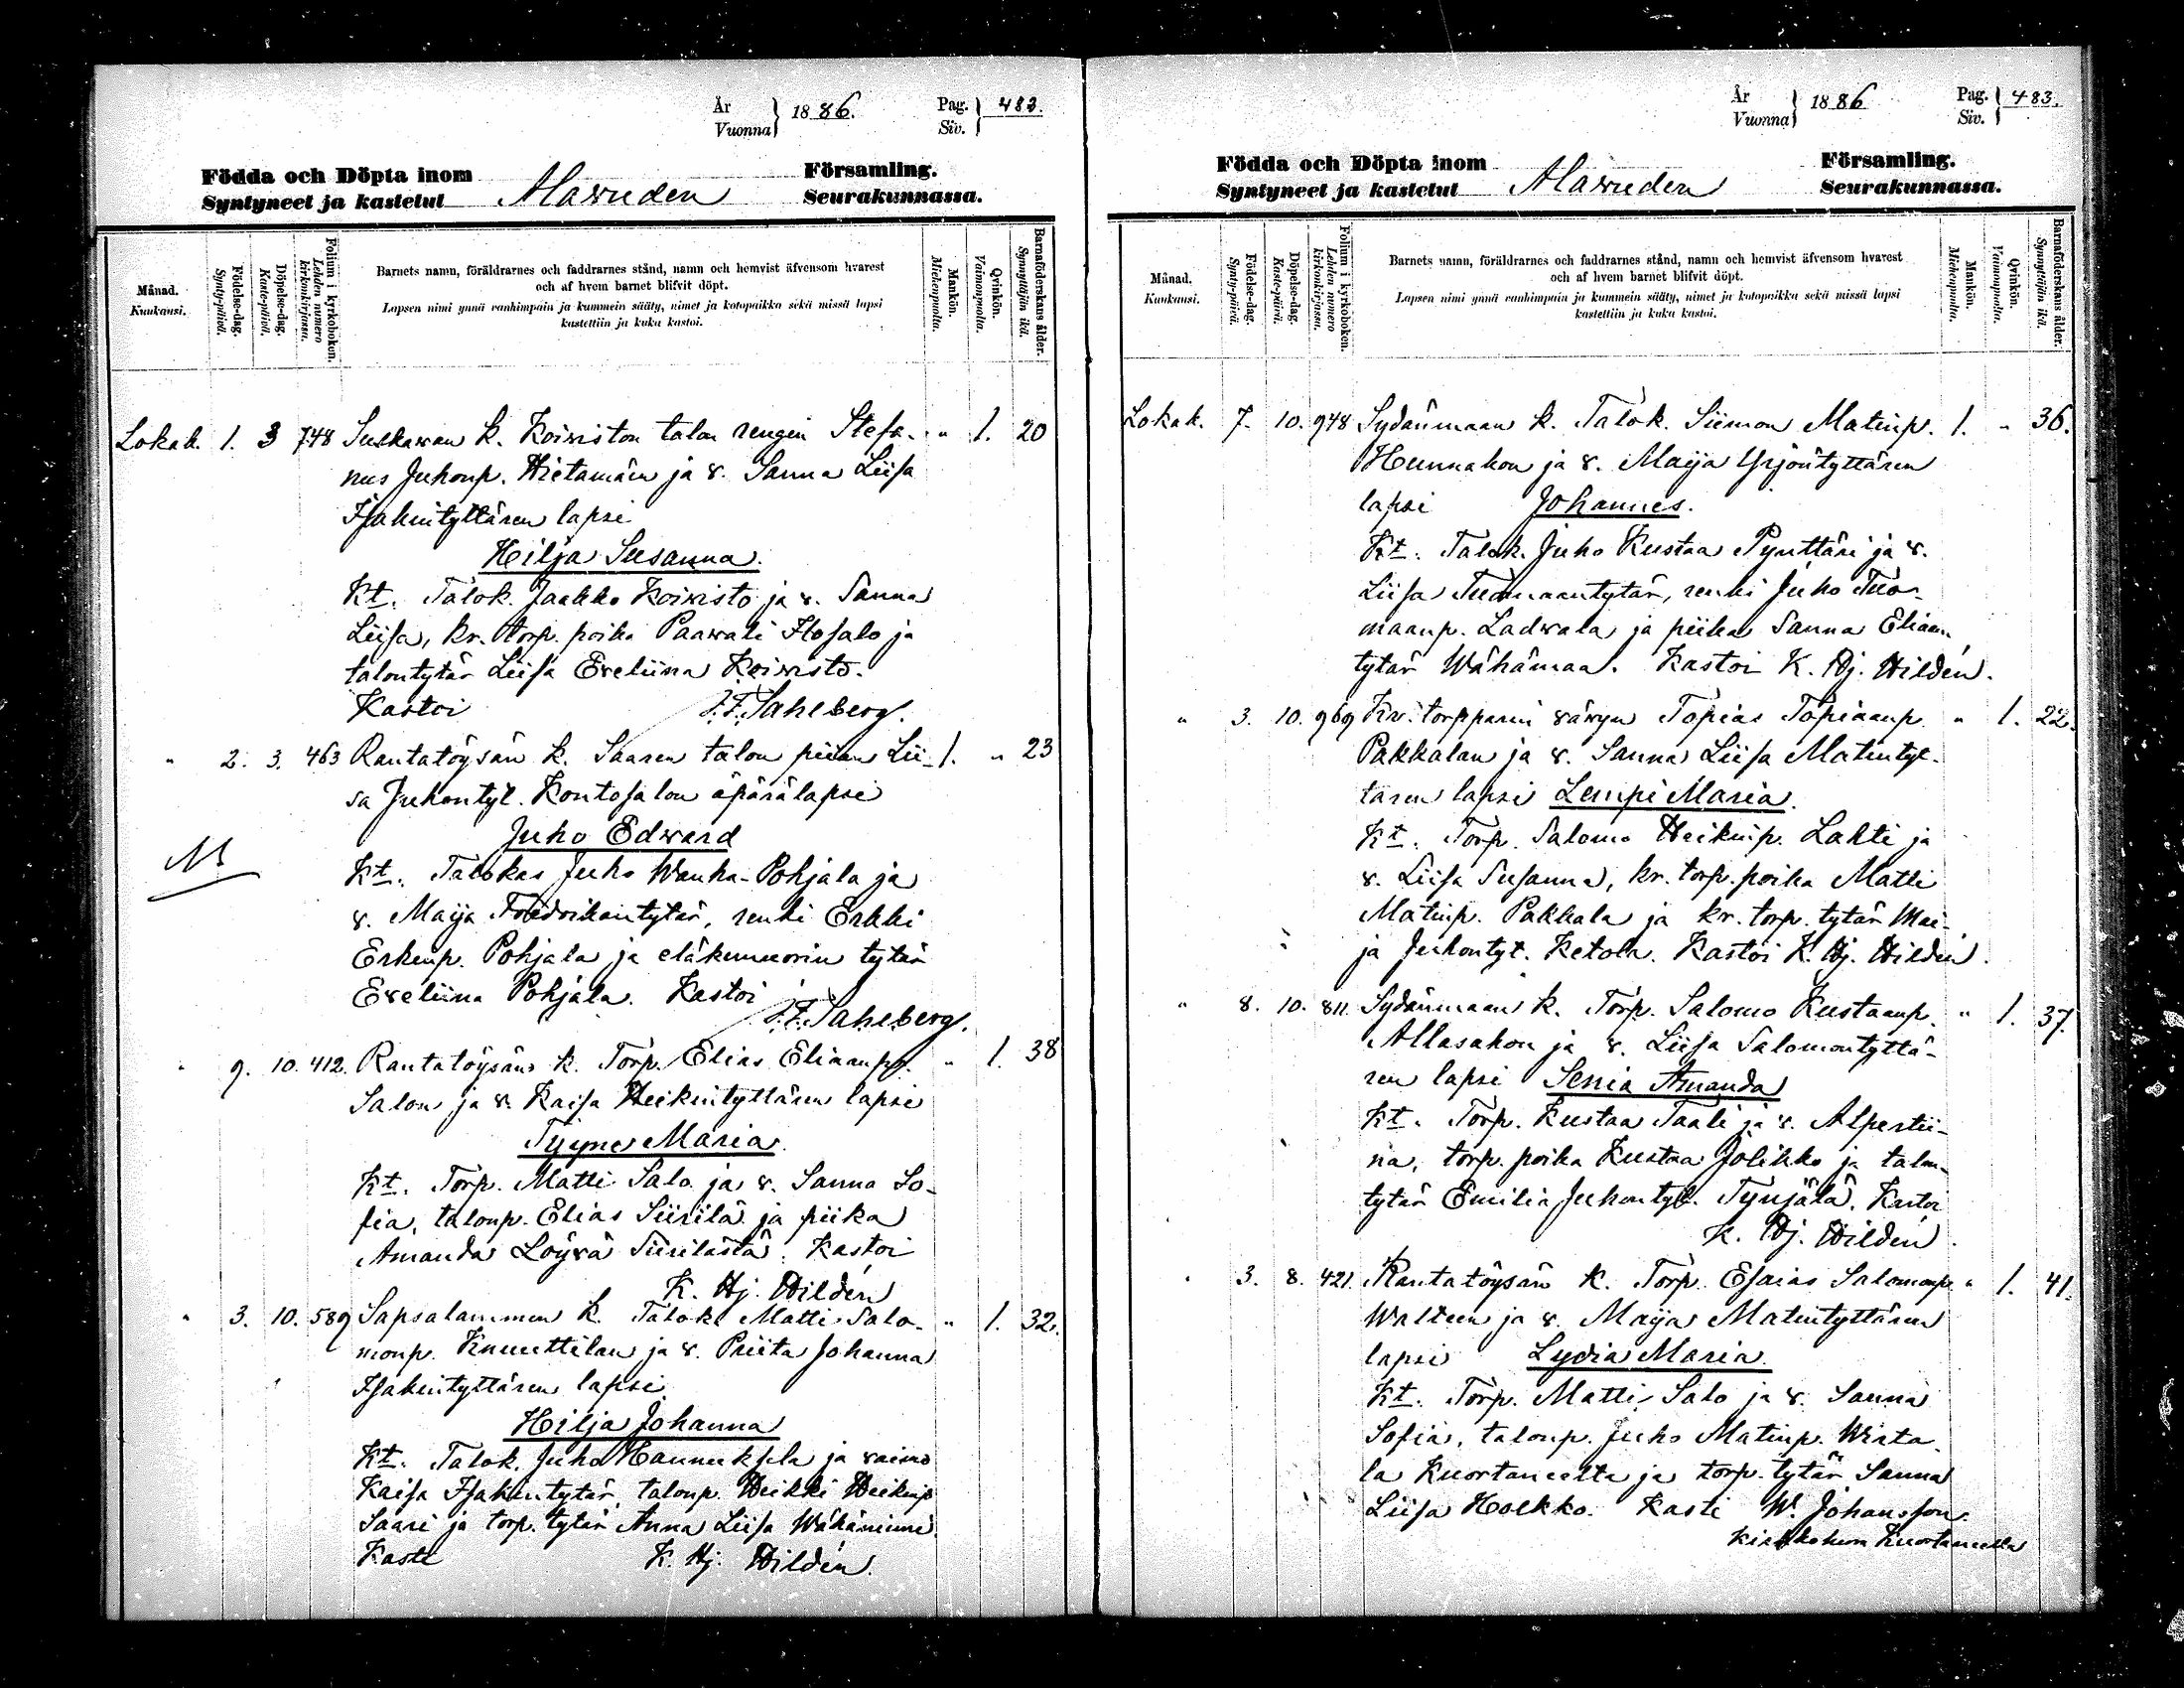 År
Vuonna
1886.
Pag.
Siv.
483.
Födda och Döpta inom
Syntyneet ja kastetut
Alavuden
Församling.
Seurakunnassa.
Månad.
Kuukausi.
Födelse-dag.
Synty-päivä.
Döpelse-dag.
Kaste-päivä.
Folium i kyrkoboken.
Lehden numero
kirkonkirjassa.
Barnets namn, föräldrarnes och faddrarnes stånd, namn och hemvist äfvensom hvarest
och af hvem barnet blifvit döpt.
Lapsen nimi ynnä vanhimpain ja kummein sääty, nimet ja kotopaikka sekä missä lapsi
kastettiin ja kuka kastoi.
Mankön.
Miehenpuolta.
Qvinkön.
Vaimonpuolta.
Barnaföderskans ålder.
Synnyttäjän ikä.
Lokak. 1. 3 748 Suskawan k. Koiviston talon rengin Stefa- " 1. 20
nus Juhonp. Hietamäen ja v. Sanna Liisa
Isakintyttären lapsi
Hilja Susanna.
Kt. Talok. Jaakko Koivisto ja v. Sanna
Liisa, kr. torp. poika Paavali Ilosalo ja
talontytär Liisa Eveliina Koivisto.
Kastoi J.F. Sahlberg.
" 2. 3. 463 Rantatöysän k. Saaren talon piian Lii- 1. " 23
sa Juhontyt. Kontosalon äpärälapsi
Juho Edward
Kt. Talokas Juho Wanha-Pohjala ja
v. Maija Fredrikantytär, renki Erkki
Erkinp. Pohjala ja eläkemuorin tytär
Eveliina Pohjala. Kastoi
J.F. Sahlberg.
" 9. 10. 412. Rantatöysän k. Torp. Elias Eliaanp. " 1. 38
Salon ja v. Kaisa Heikintyttären lapsi
Tyyne Maria.
Kt. Torp. Matti Salo ja v. Sanna So-
fia, talonp. Elias Siirilä ja piika
Amanda Löyvä Siirilästä. Kastoi
K. Hj. Hildén
" 3. 10. 589 Sapsalammen k. Talok. Matti Salo- " 1. 32.
monp. Knuuttilan ja v. Priita Johanna
Isakintyttären lapsi
Hilja Johanna
Kt. Talok. Juho Hannuksela ja vaimo
Kaisa Isakintytär, talonp. Heikki Heikinp
Saari ja torp. tytär Anna Liisa Wähäniemi.
Kasti K. Hj. Hildén.
År
Vuonna
1886
Pag.
Siv.
483.
Födda och Döpta inom
Syntyneet ja kastetut
Alavuden
Församling.
Seurakunnassa.
Månad.
Kuukausi.
Födelse-dag.
Synty-päivä.
Döpelse-dag.
Kaste-päivä.
Folium i kyrkoboken.
Lehden numero
kirkonkirjassa.
Barnets namn, föräldrarnes och faddrarnes stånd, namn och hemvist äfvensom hvarest
och af hvem barnet blifvit döpt.
Lapsen nimi ynnä vanhimpain ja kummein sääty, nimet ja kotopaikka sekä missä lapsi
kastettiin ja kuka kastoi.
Mankön.
Miehenpuolta.
Qvinkön.
Vaimonpuolta.
Barnaföderskans ålder.
Synnyttäjän ikä.
Lokak. 7. 10. 948 Sydänmaan k. Talok. Siimon Matinp. 1. " 36.
Hunnakon ja v. Maija Yrjöntyttären
lapsi Johannes.
Kt. Talok. Juho Kustaa Pynttäri ja v.
Liisa Tuomaantytär, renki Juho Tuo-
maanp. Ladvala ja piika Sanna Eliaan
tytär Wähämaa. Kastoi K. Hj. Hildén.
" 3. 10. 969 Kr. torpparin vävyn Topias Topiaanp. " 1. 22.
Pakkalan ja v. Sanna Liisa Matintyt-
tären lapsi Lempi Maria.
Kt. Torp. Salomo Heikinp. Lahti ja
v. Liisa Susanna, kr. torp. poika Matti
Matinp. Pakkala ja kr. torp. tytär Mai-
ja Juhontyt. Ketola. Kastoi K. Hj. Hildén.
" 8. 10. 811. Sydänmaan k. Torp. Salomo Kustaanp. " 1. 37.
Allasahon ja v. Liisa Salomontyttä-
ren lapsi Senia Amanda
Kt. Torp. Kustaa Taali ja v. Alpertii-
na, torp. poika Kustaa Jolikko ja talon-
tytär Emilia Juhontyt. Tynjälä. Kastoi
K. Hj. Hildén.
" 3. 8. 421. Rantatöysän k. Torp. Esaias Salomonp. " 1. 41.
Walteen ja v. Maija Matintyttären
lapsi Lydia Maria.
Kt. Torp. Matti Salo ja v. Sanna
Sofia, talonp. Juho Matinp. Wirta-
la Kuortaneelta ja torp. tytär Sanna
Liisa Holkko. Kasti W. Johansson.
Kuortaneella